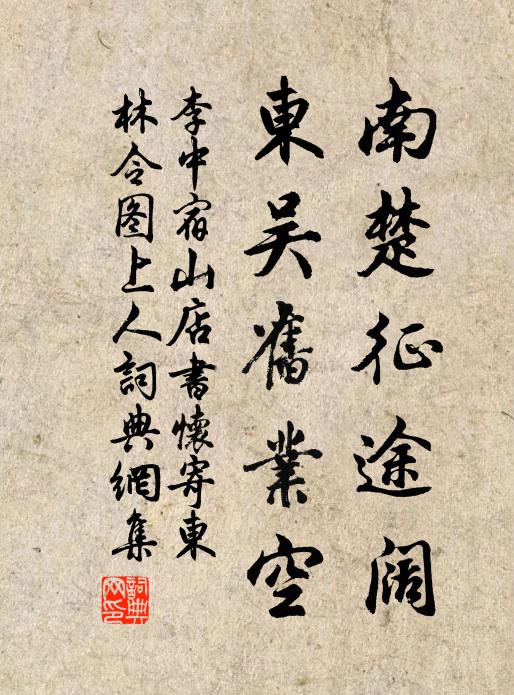 南楚征途阔
東吴舊業空
李中宿山店書懷寄東
林令图上人詞典網集
詞典網印